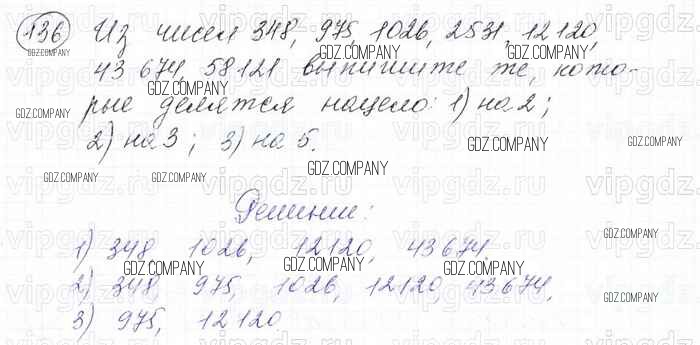 136 Из чисел 348, 975, 1026, 2531, 12120,
43674, 58121 выпишите те, кото-
рые делятся нацело: 1) на 2;
2) на 3; 3) на 5.
Решение:
1) 348 1026, 12120, 43674.
2) 348, 975, 1026, 12120, 43674,
3) 975, 12120
GDZ.COMPANY
vipgdz.ru